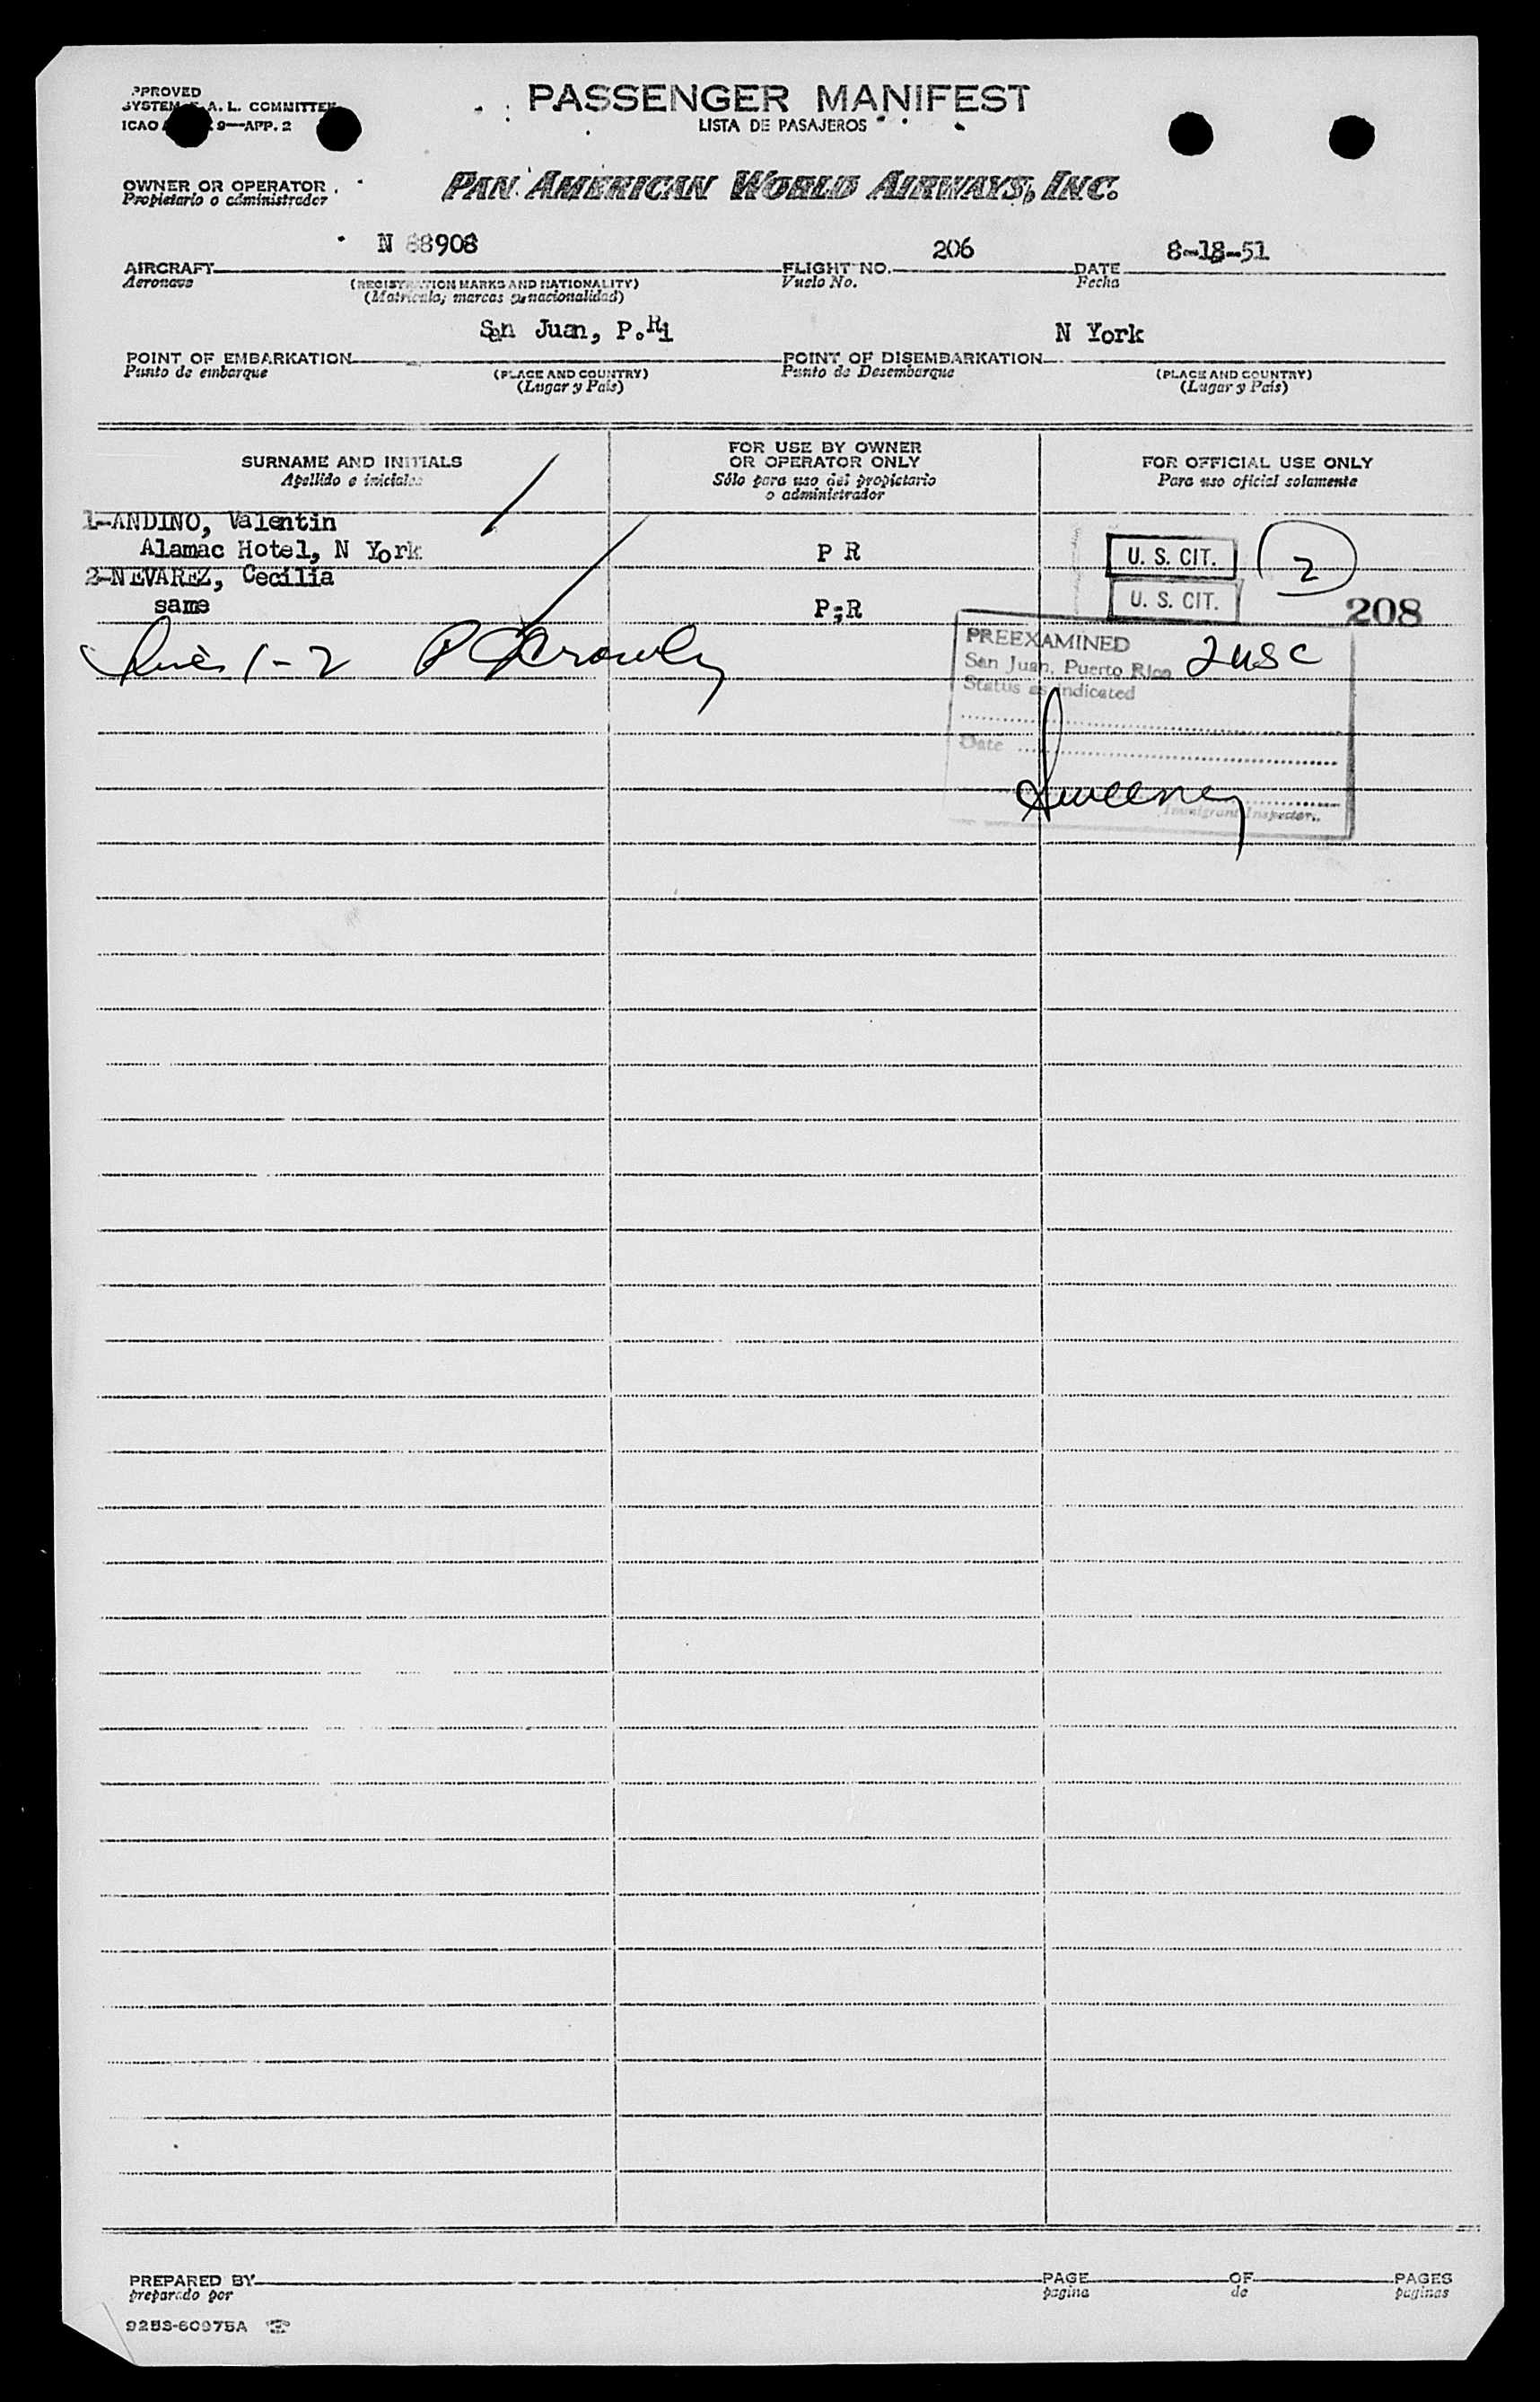 PPROVED
SYSTEM F.A.L. COMMITTEE
ICAO 9—APP. 2
PASSENGER MANIFEST
LISTA DE PASAJEROS
OWNER OR OPERATOR
Propietario o administrador
PAN AMERICAN WORLD AIRWAYS, INC.
N 88908
206
8-18-51
AIRCRAFT
Aeronave
(REGISTRATION MARKS AND NATIONALITY)
(Matricula, marcas y nacionalidad)
FLIGHT NO.
Vuelo No.
DATE
Fecha
San Juan, P.Ri
N York
POINT OF EMBARKATION
Punto de embarque
(PLACE AND COUNTRY)
(Lugar y País)
POINT OF DISEMBARKATION
Punto de Desembarque
(PLACE AND COUNTRY)
(Lugar y País)
SURNAME AND INITIALS
Apellido e iniciales
FOR USE BY OWNER
OR OPERATOR ONLY
Sólo para uso del propietario
o administrador
FOR OFFICIAL USE ONLY
Para uso oficial solamente
1-ANDINO, Valentin
Alamac Hotel, N York
P R
U. S. CIT.
2
2-NEVAREZ, Cecilia
same
P;R
U. S. CIT.
208
1-2
Crowley
PREEXAMINED
San Juan, Puerto Rico
Status as indicated
2 USC
Date
Sweeney
Immigrant Inspector.
PREPARED BY
preparado por
PAGE
pagina
OF
de
PAGES
paginas
9253-60975A